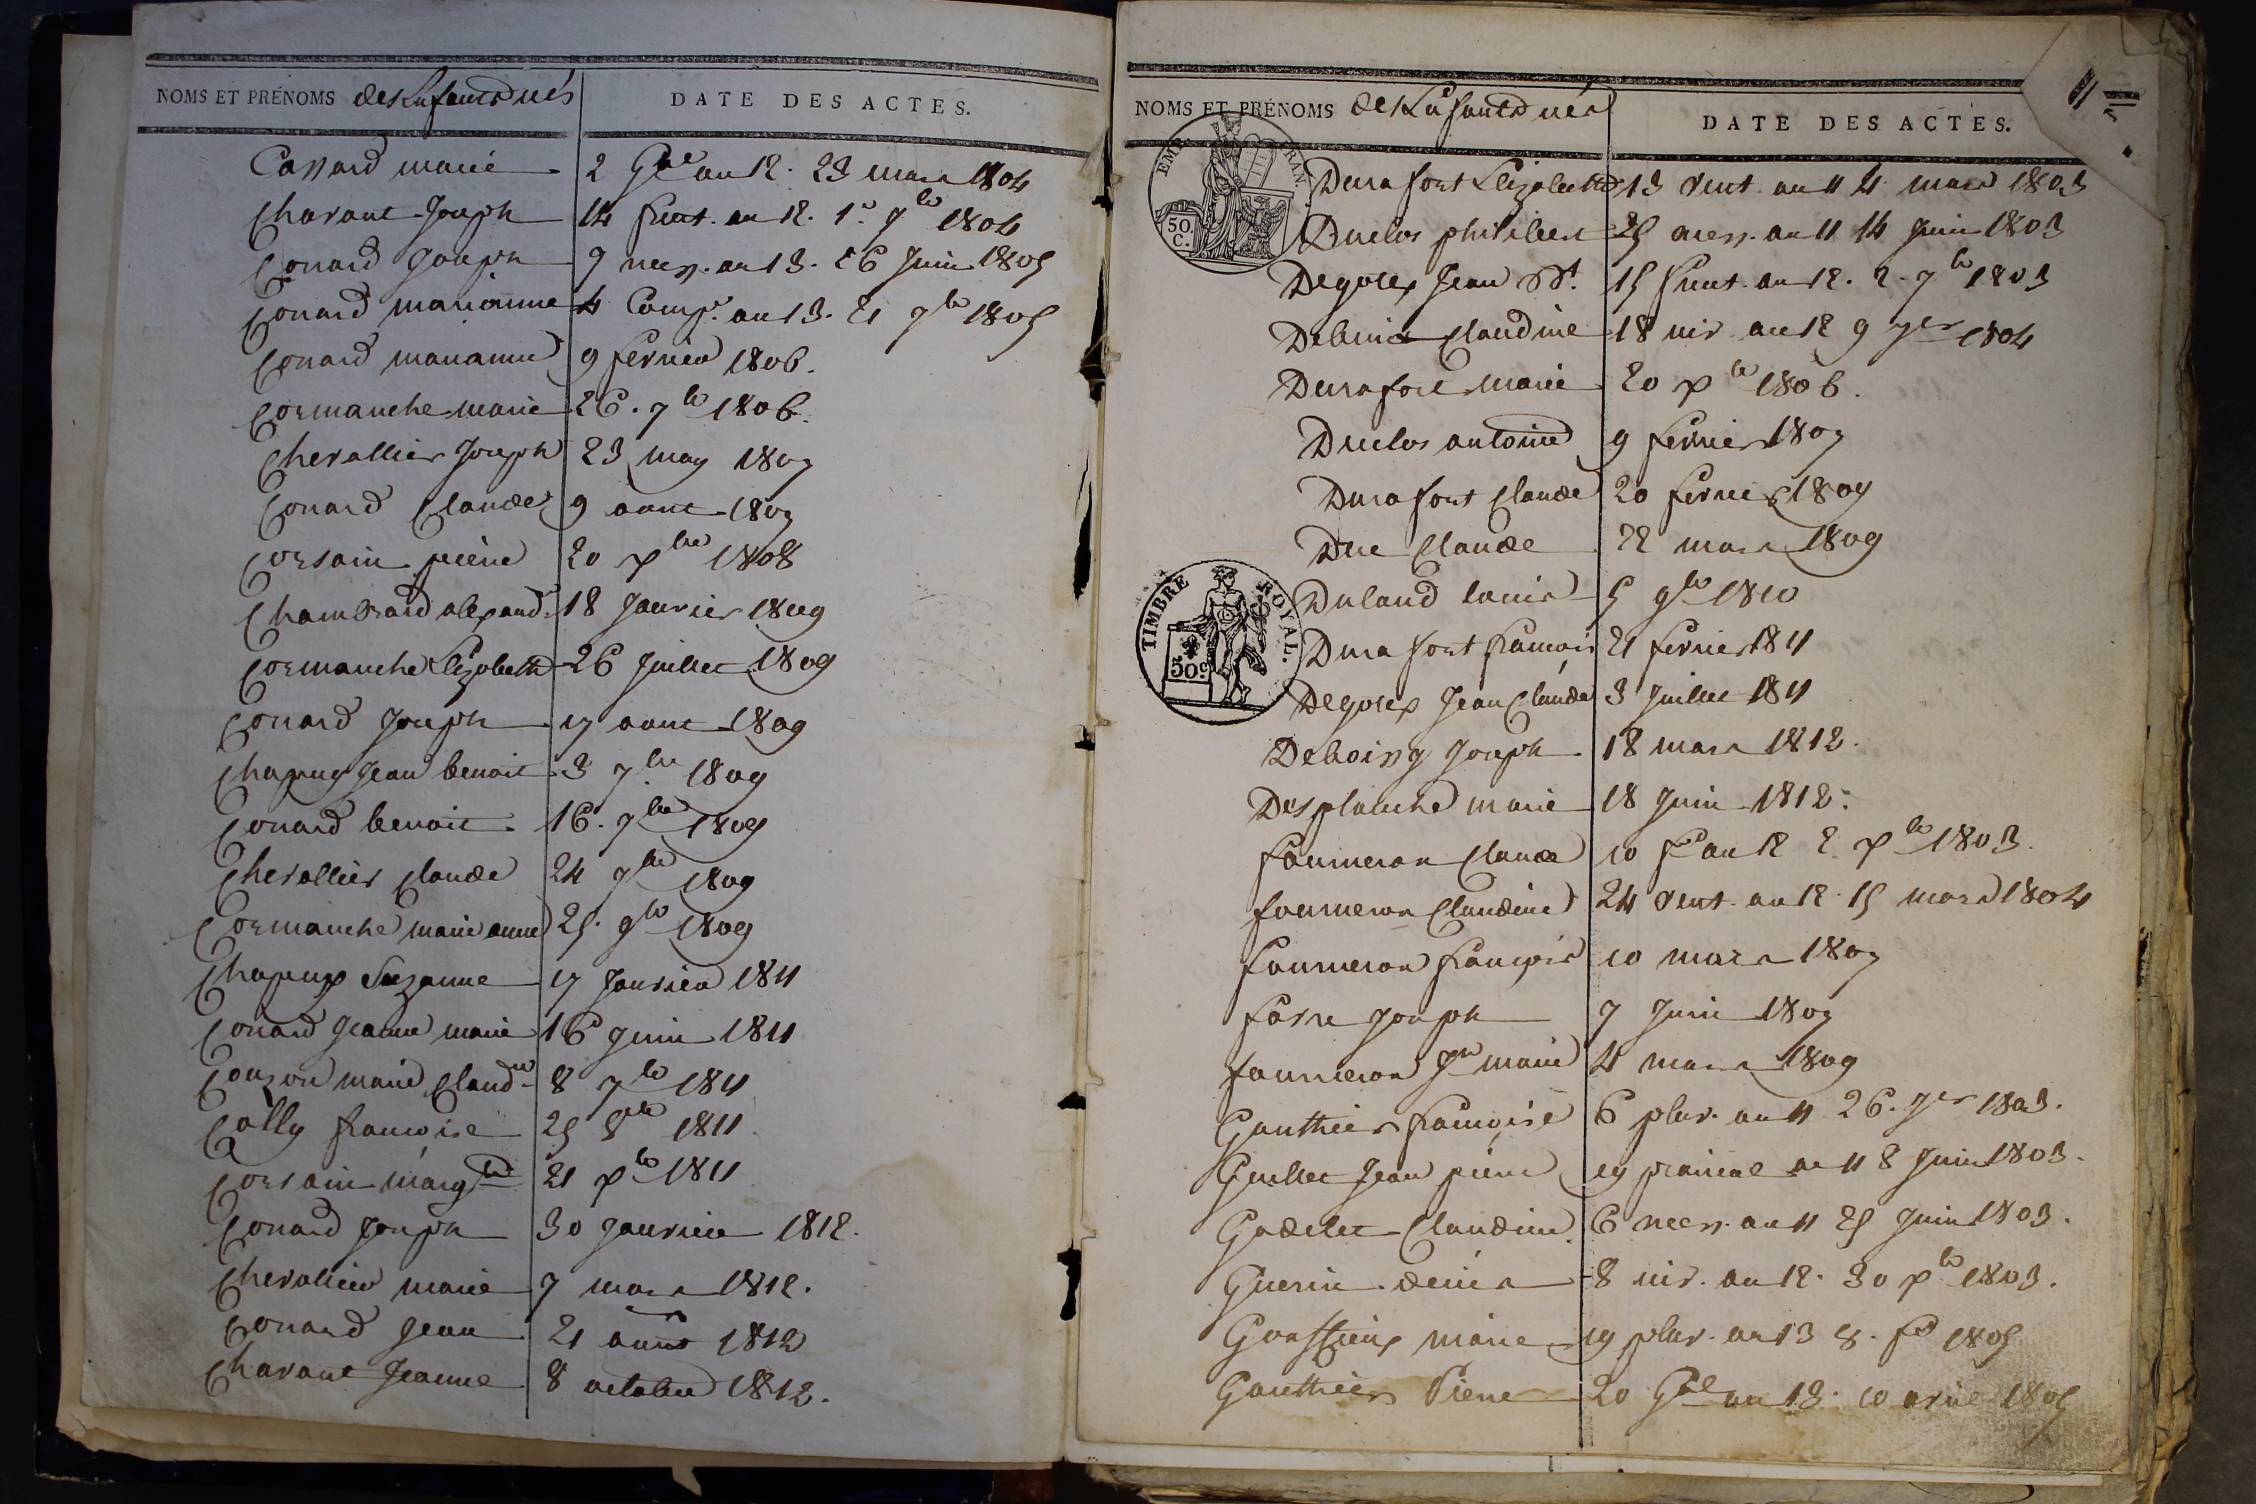 NOMS ET PRÉNOMS des Enfants nés DATE DES ACTES.
Cassard marie 2 Gal an 12. 23 mars 1804
Charant Joseph 14 fruct. an 12. 1er 7bre 1804
Conard Joseph 9 mess. an 13. 26 Juin 1805
Conard marianne 4 Comp. an 13. 21 7bre 1805
Conard marianne 9 fevrier 1806.
Cormanche marie 26. 7bre 1806.
Chevallier Joseph 23 may 1807
Conard Claude 9 aout 1807
Corsain pierre 20 xbre 1808
Chambrard alexand. 18 Janvier 1809
Cormanche Elizabeth 26 Juillet 1809
Conard Joseph 17 aout 1809
Chapuy Jean benoit 3 7bre 1809
Conard benoit 16. 7bre 1809
Chevallier Claude 24 7bre 1809
Cormanche marie anne 25. 9bre 1809
Chapuy Suzanne 17 Janvier 1811
Conard Jeanne marie 16 Juin 1811
Couzon marie Claudne 8 7bre 1811
Colly francoise 25 8bre 1811
Corsain margte 21 xbre 1811
Conard Joseph 30 Janvier 1812.
Chevallier marie 7 mars 1812.
Conard Jean 21 aout 1812
Charant Jeanne 8 octobre 1812.
11
NOMS ET PRÉNOMS des Enfants nés DATE DES ACTES.
EMP. FRAN.
50.
C.
Durafort Elizabeth 13 vent. an 11 4 mars 1803
Duclos philibert 25 mess. an 11 14 Juin 1803
Degotex Jean Bt. 15 fruct. an 12. 2. 7bre 1803
Claudine 18 niv. an 12 9 Jer 1804
Durafort marie 20 xbre 1806.
Duclos antoine 9 fevrier 1807
Durafort Claude 20 fevrier 1809
Duc Claude 22 mars 1809
TIMBRE ROYAL.
50c
Duland Louis 5 9bre 1810
Durafort francois 21 fevrier 1811
Degotex Jean Claude 3 Juillet 1811
Deboissy Joseph 18 mars 1812.
Desplanche marie 18 Juin 1812.
fourneron Claude 10 fre an 12 2 xbre 1803.
fourneron Claudine 24 vent. an 12. 15 mars 1804
fourneron françois 10 mars 1807
farre Joseph 7 Juin 1807
fourneron Jne marie 4 mars 1809
Gauthier françoise 6 pluv. an 11 26. Jer 1803.
Guillet Jean pierre 19 prairial an 11 8 Juin 1803.
Godelet Claudine 6 mess. an 11 25 Juin 1803.
Guerin denis 8 niv. an 12. 30 xbre 1803.
marie 19 pluv. an 13 8. fer 1805
Gauthier Pierre 20 Gal an 13. 10 avril 1805